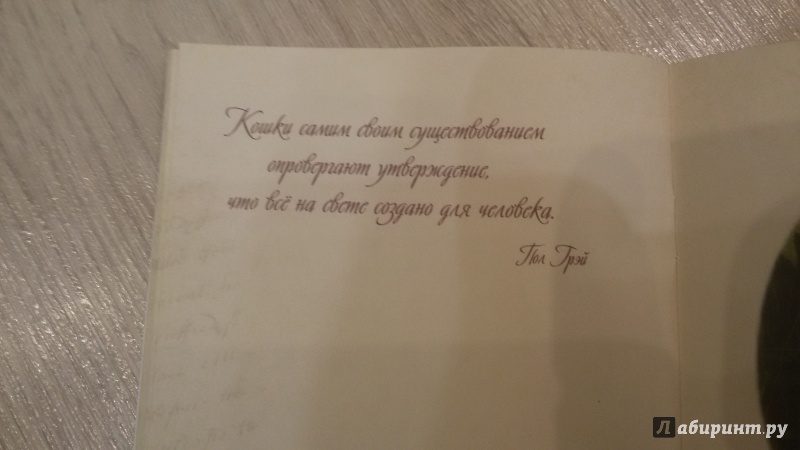 Кошки самим своим существованием
опровергают утверждение,
что всё на свете создано для человека.
Пол Грэй
Лабиринт.ру